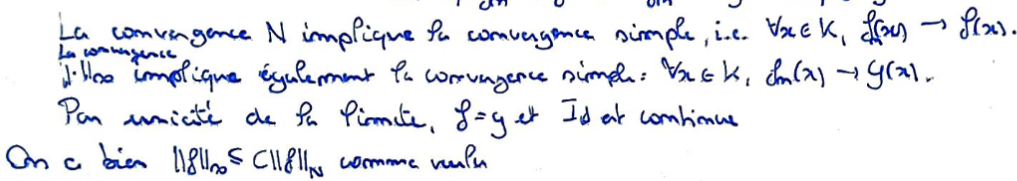 La convergence N implique la convergence simple, i.e. ∀x ∈ K, fn(x) → f(x).
La convergence
‖·‖∞ implique également la convergence simple : ∀x ∈ K, fn(x) → g(x).
Par unicité de la limite, f = g et Id est continue
On a bien ‖f‖∞ ≤ C‖f‖N comme voulu